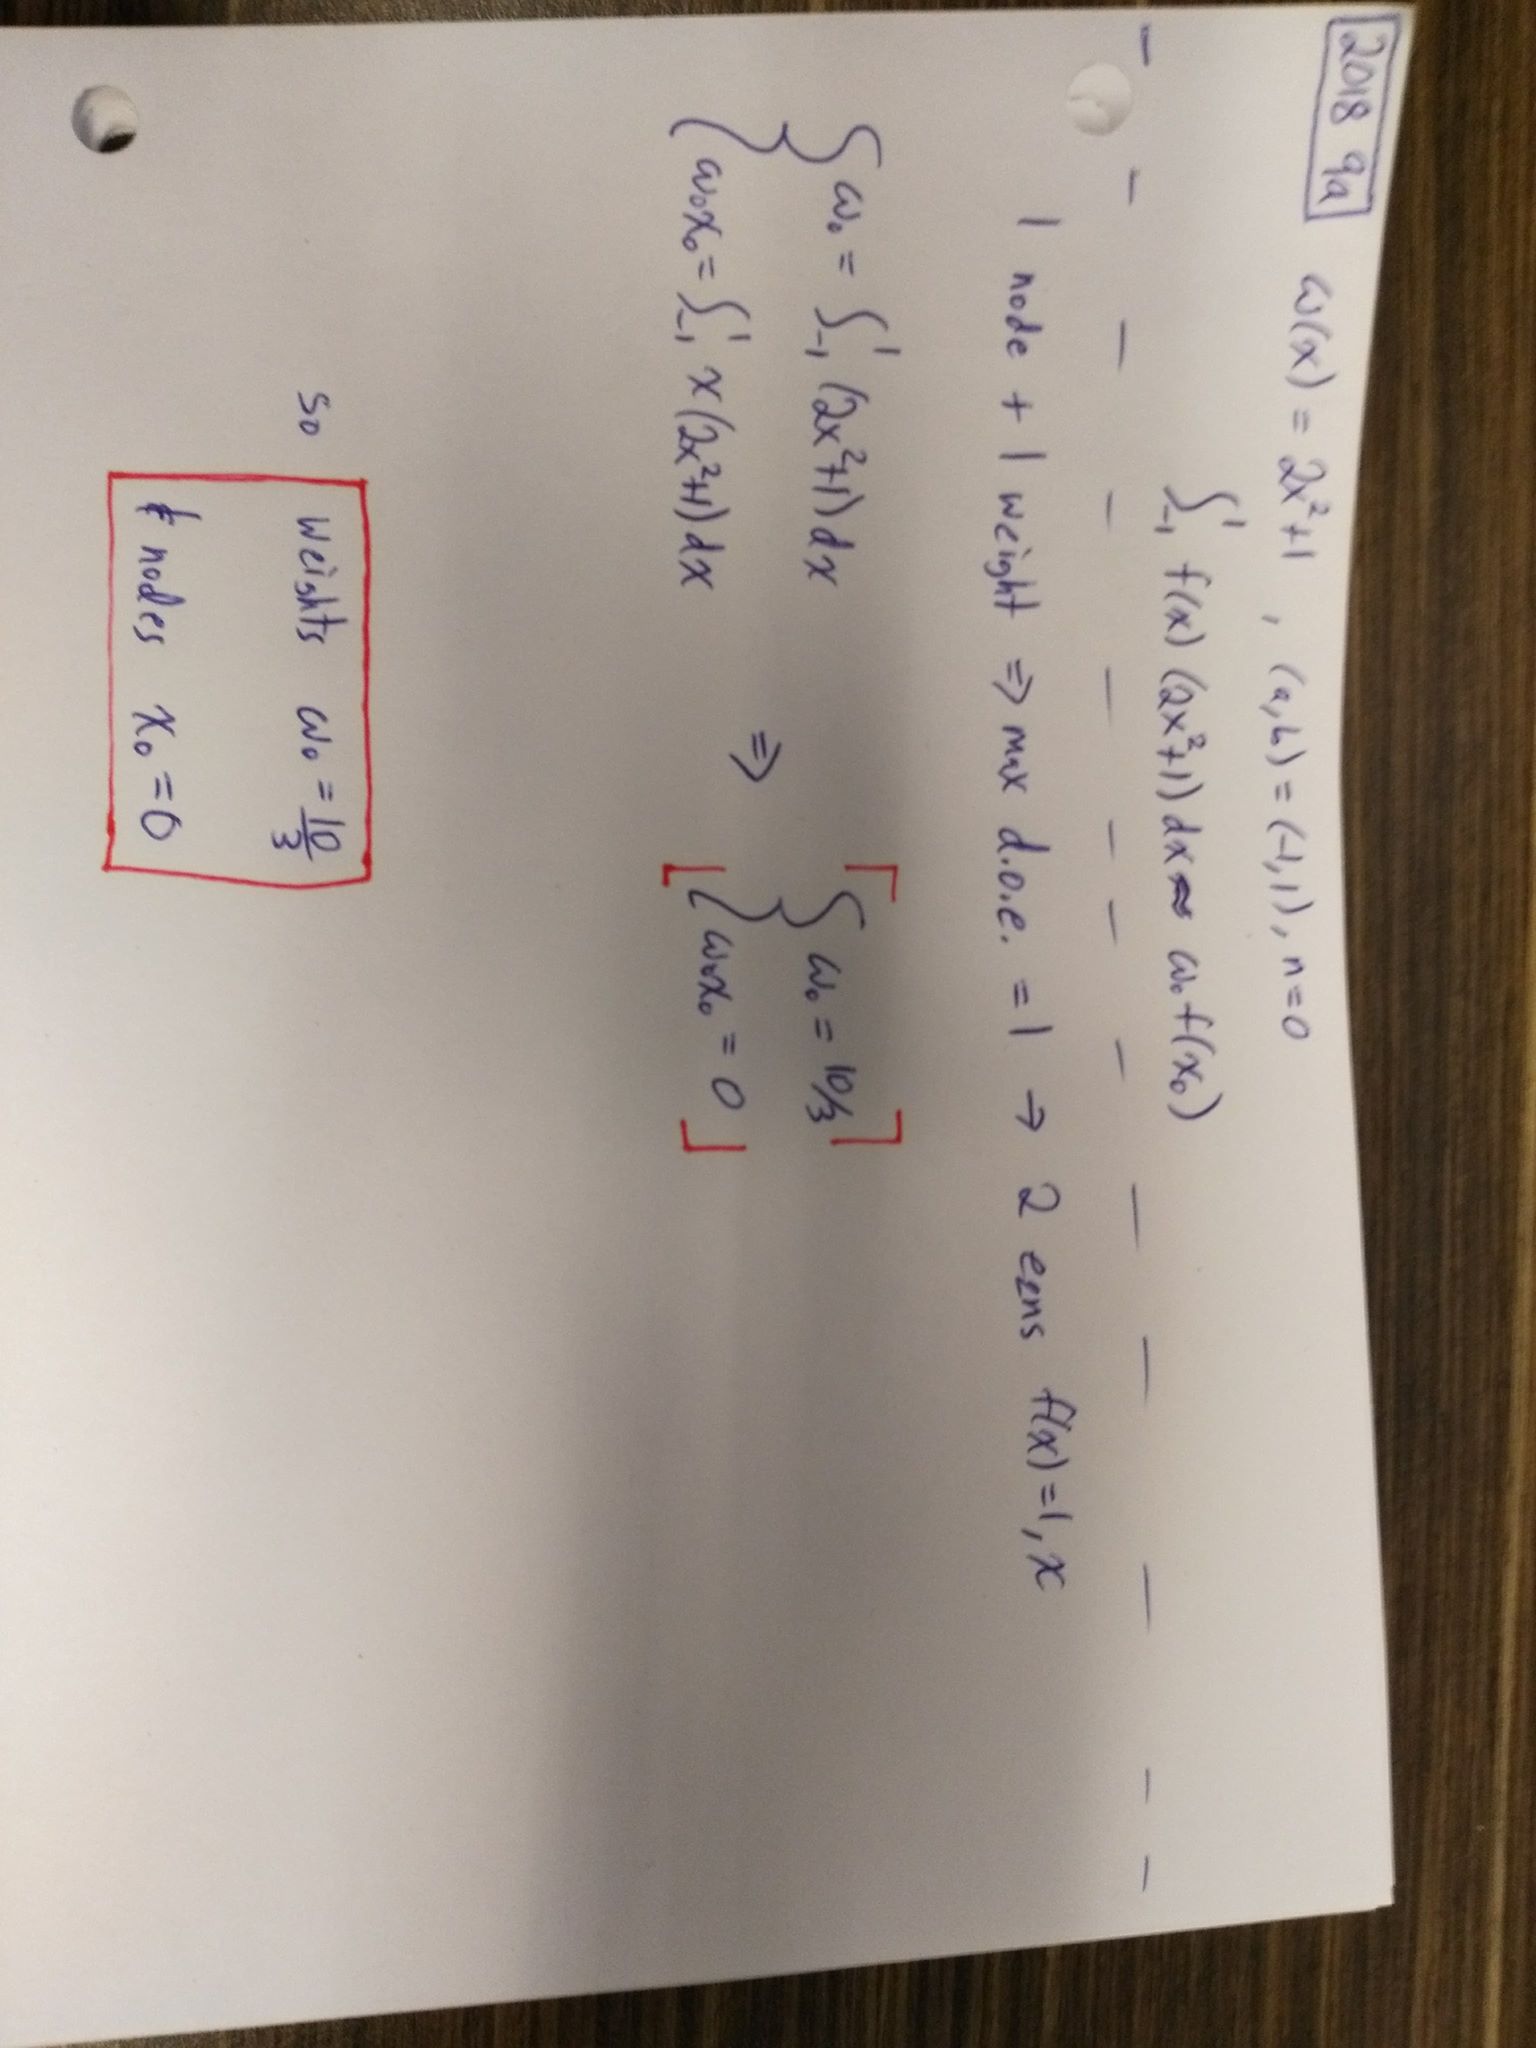 2018 9a w(x) = 2x²+1 , (a,b) = (-1,1), n=0
∫₋₁¹ f(x) (2x²+1) dx ≈ ω₀ f(x₀)
1 node + 1 weight ⇒ max d.o.e. = 1 → 2 eqns f(x)=1, x
{ ω₀ = ∫₋₁¹ (2x²+1) dx ⇒ { ω₀ = 10/3
ω₀x₀ = ∫₋₁¹ x(2x²+1) dx ω₀x₀ = 0
so weights ω₀ = 10/3
& nodes x₀ = 0